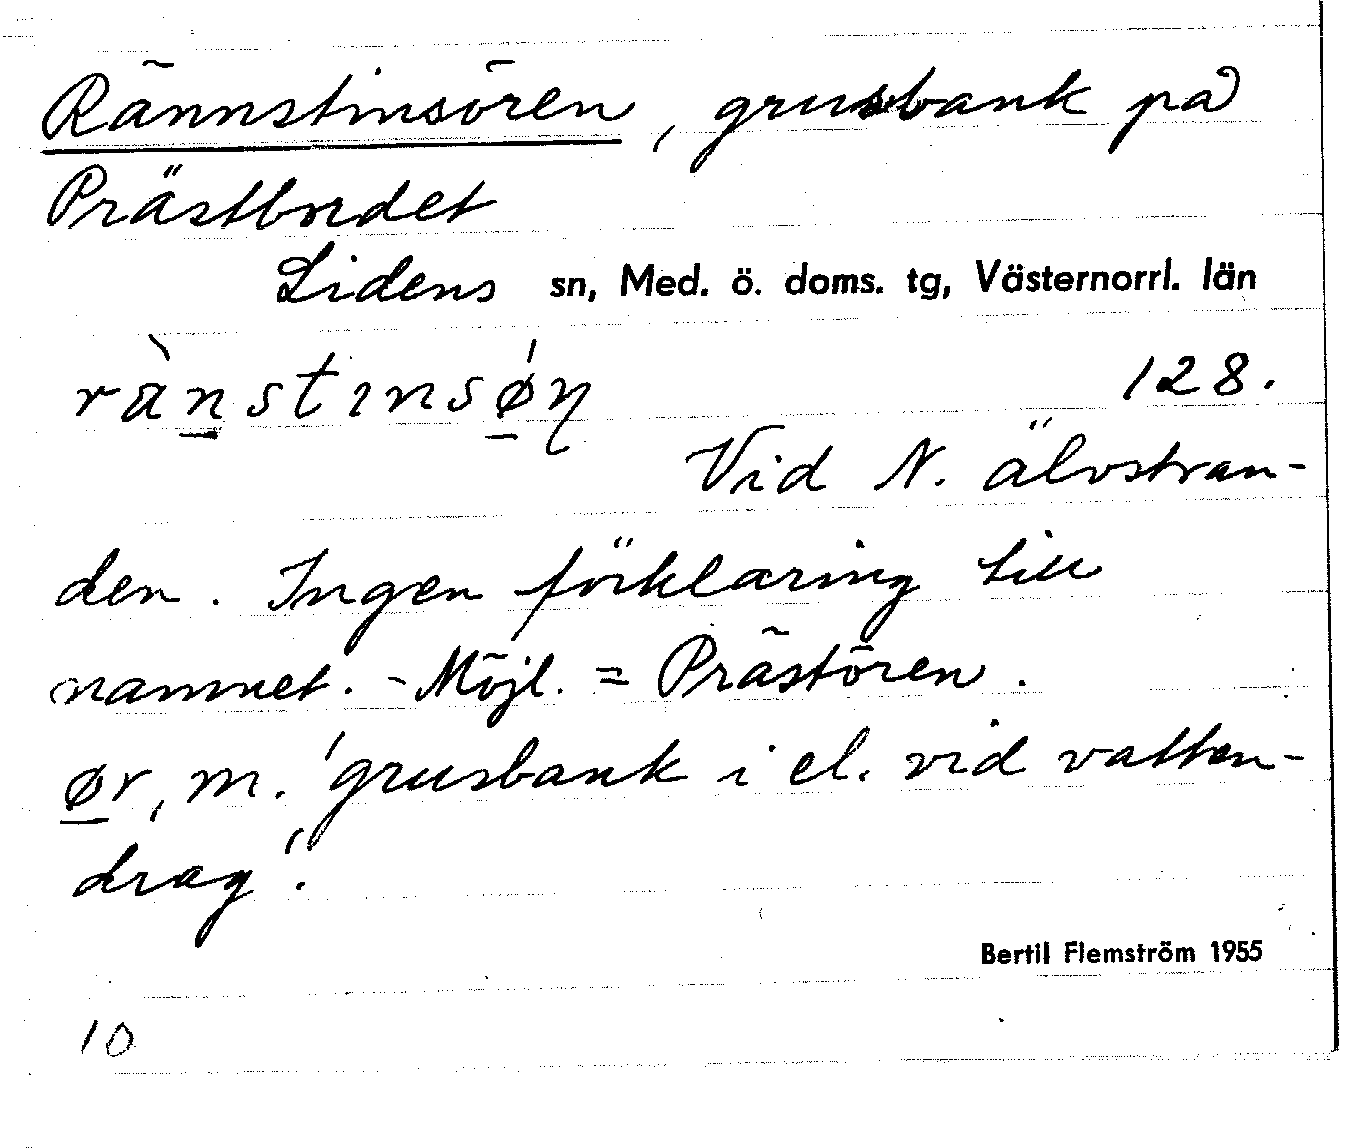 Rännstinsören, grusbank på
Prästbordet
Lidens sn, Med. ö. doms. tg, Västernorrl. län
rànstinsǿɳ 128.
Vid N. älvstran-
den. Ingen förklaring till
namnet. - Möjl. = Prästören.
ør, m. 'grusbank i el. vid vatten-
drag'.
Bertil Flemström 1955
10